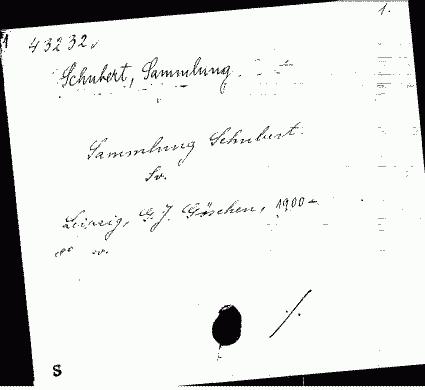 1.
43232.
Schubert, Sammlung.
Sammlung Schubert.
Sv.
Leipzig, G. J. Göschen, 1900-
8° v.
S